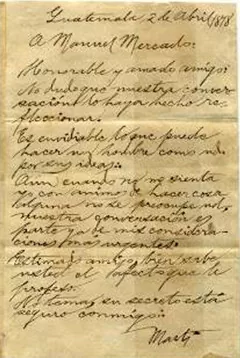 Guatemala 2 de Abril/1878
A Manuel Mercado:
Honorable y amado amigo:
No dudo qué nuestra conver-
sación lo haya hecho re-
flecionar.
Es envidible lo que puede
hacer un hombre como
por sus ideas.
Aun cuando no me sienta
con animo de hacer cosa
alguna no se preocupe
nuestra conversación es
parte ya de mis considera-
ciones mas urgentes.
Estimado amigo, bien sabe
usted el afecto que le
profeso.
No tema, su secreto está
seguro conmigo:
Martí